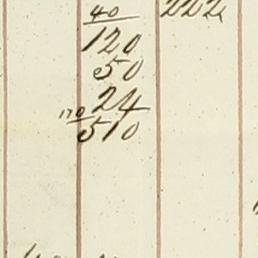 40 222
120
50
170 24
510